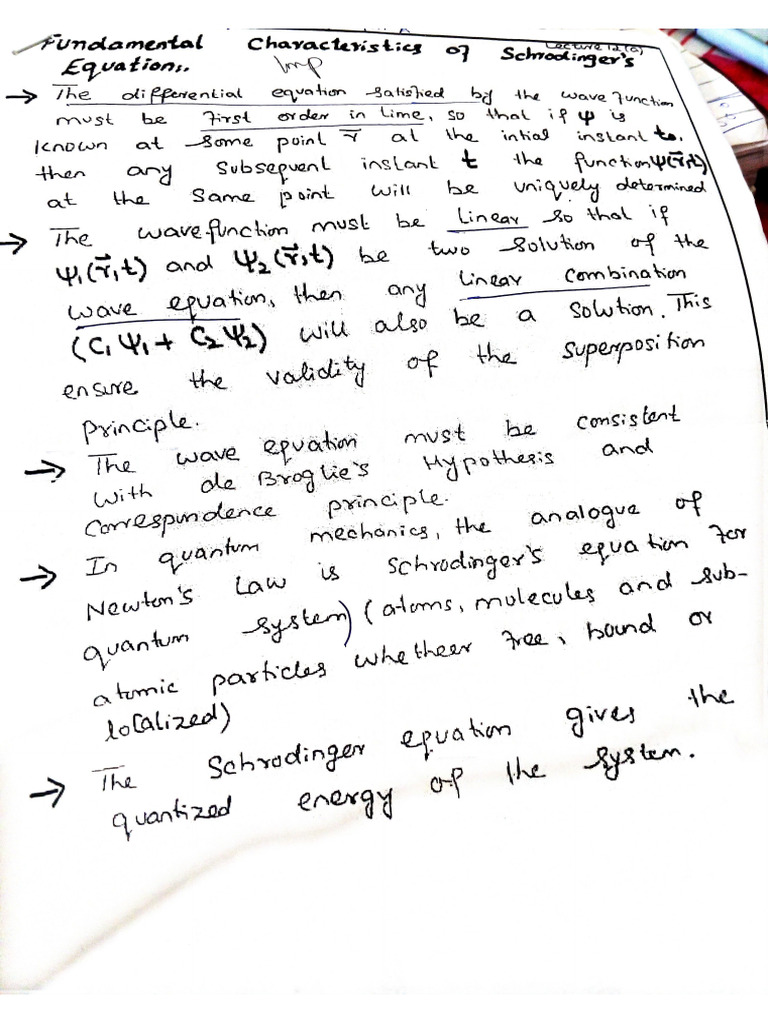 Lecture 12(a)
Fundamental Characteristics of Schrodinger's
Equation:. Imp
→ The differential equation satisfied by the wave function
must be First order in time, so that if ψ is
known at some point r⃗ at the intial instant to,
then any subsequent instant t the function ψ(r⃗,t)
at the same point will be uniquely determined
→ The wavefunction must be linear so that if
ψ₁(r⃗,t) and ψ₂(r⃗,t) be two solution of the
wave equation, then any linear combination
(C₁ψ₁ + C₂ψ₂) will also be a solution. This
ensure the validity of the superposition
principle.
→ The wave equation must be consistent
with de Broglie's Hypothesis and
Correspondence principle.
→ In quantum mechanics, the analogue of
Newton's Law is Schrodinger's equation for
quantum system) (atoms, molecules and sub-
atomic particles whetheer free, bound or
localized)
→ The Schrodinger equation gives the
quantized energy of the system.